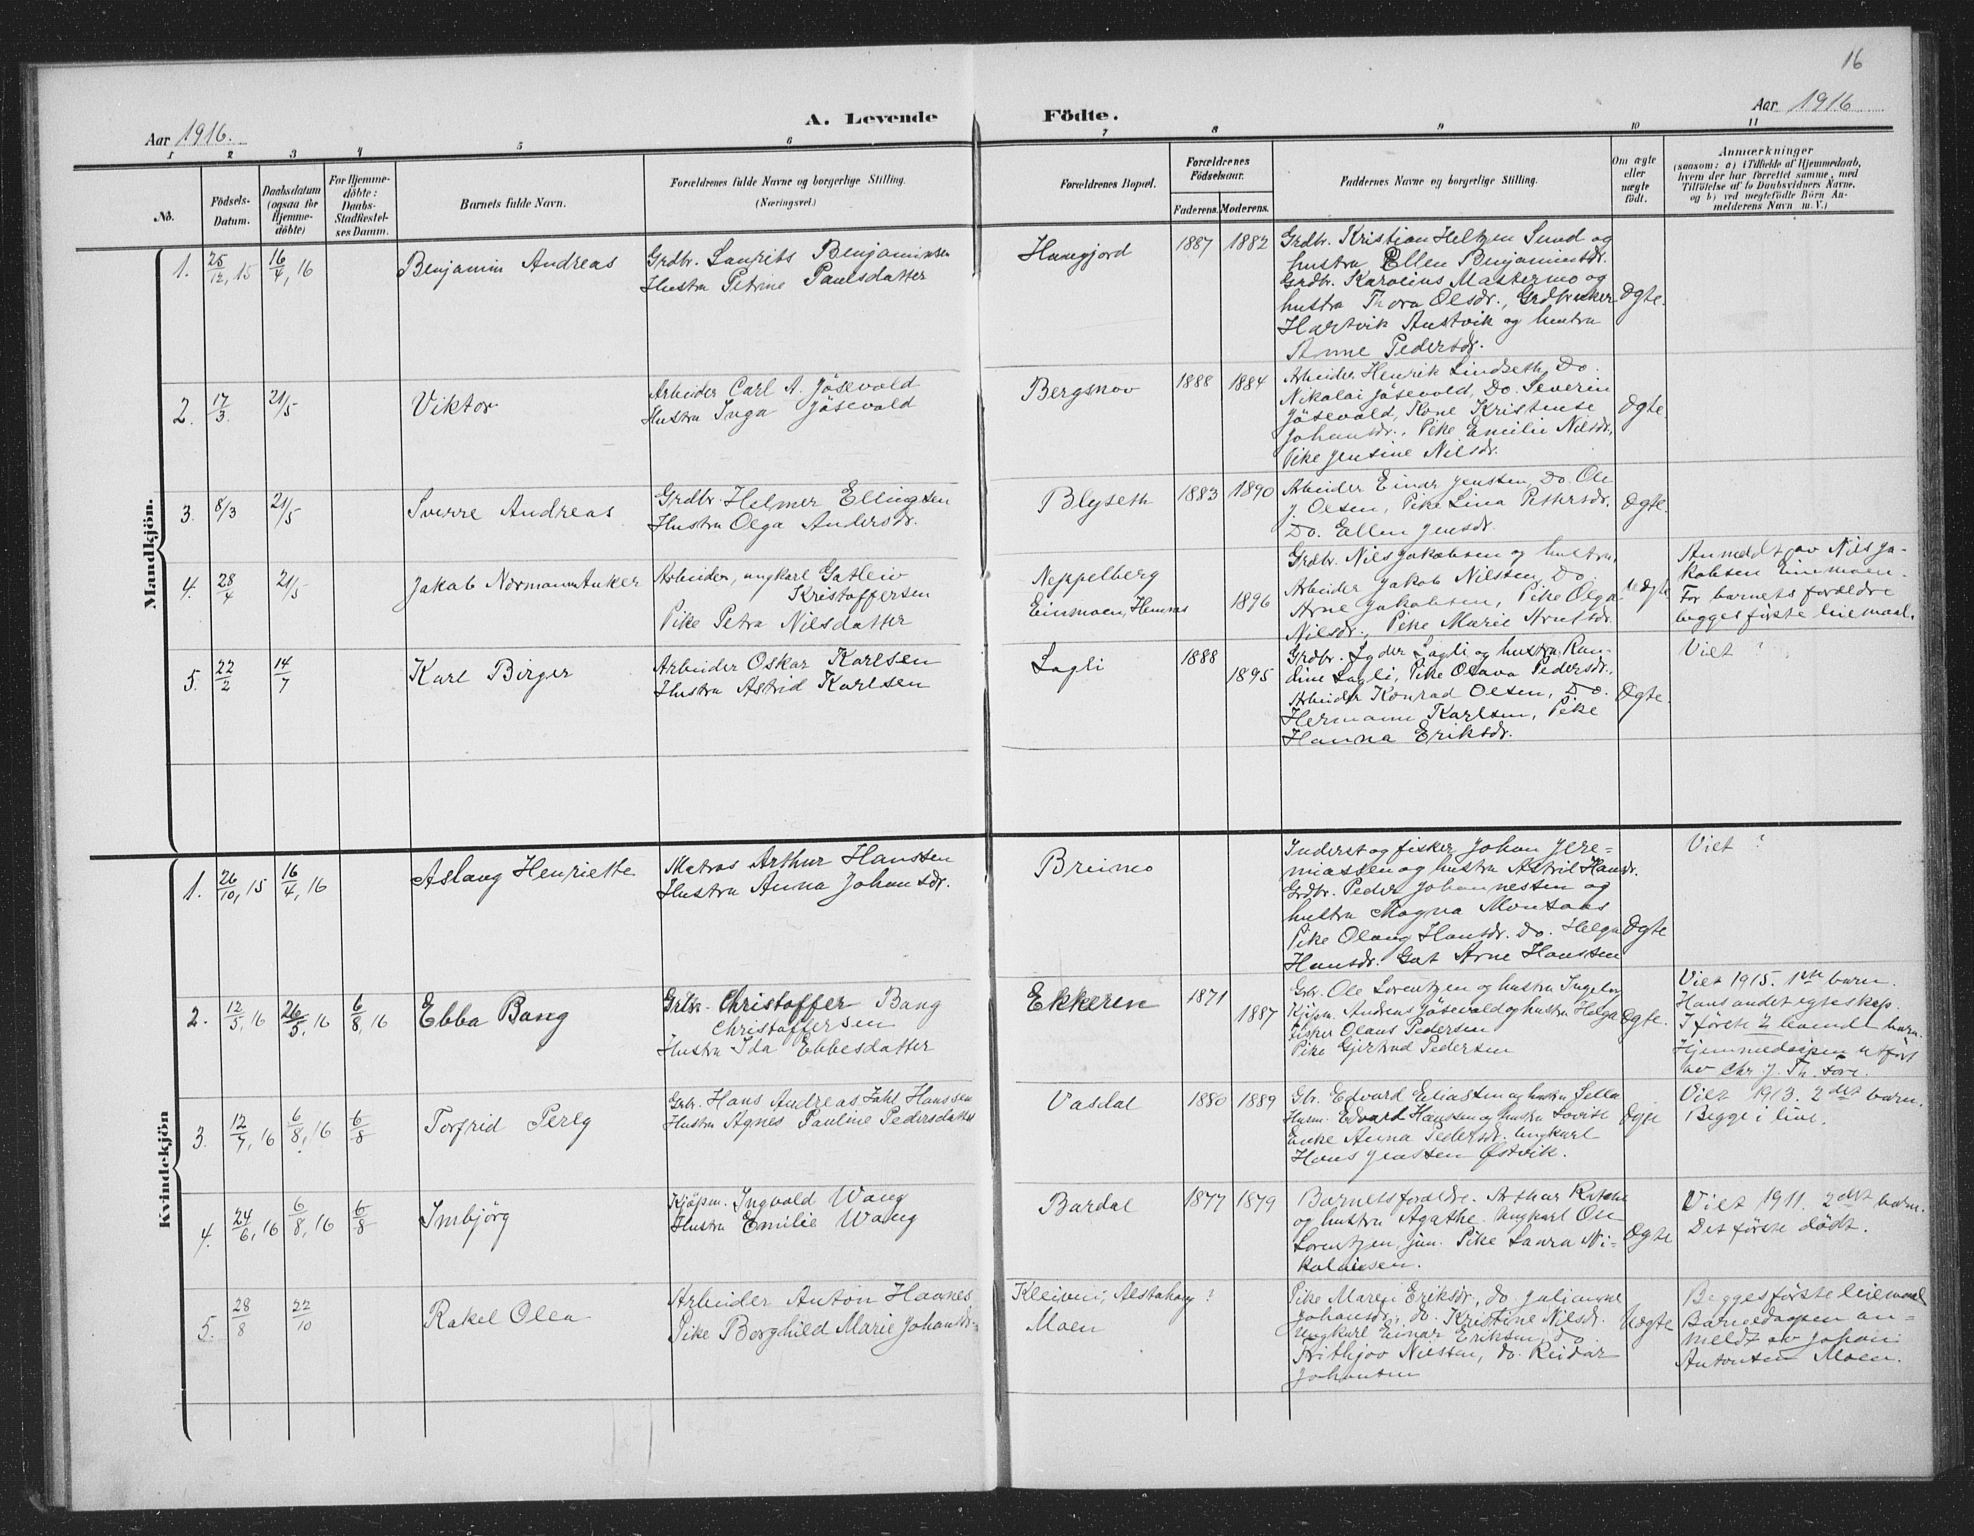 16
Aar 1916.
A. Levende
Födte.
Aar 1916
1 2 3 4 5 6 7 8 9 10 11
No.
Födsels-
Datum.
Daabsdatum
(ogsaa for
Hjemme-
döbte)
For Hjemme-
döbte:
Daabs-
Stadfestel-
ses Datum.
Barnets fulde Navn.
Forældrenes fulde Navne og borgerlige Stilling.
(Næringsvei.)
Forældrenes Bopæl.
Forældrenes
Födselsaar.
Faderens. Moderens.
Faddernes Navne og borgerlige Stilling.
Om ægte
eller
uægte
födt.
Anmærkninger
(saasom: a) i Tilfælde af Hjemmedaab,
hvem der har forrettet samme, med
Tilföielse af to Daabsvidners Navne,
og b) ved uægtefödte Börn An-
melderens Navn m. V.)
Mandkjön.
1. 25/12, 15 16/4, 16 Benjamin Andreas
Grdbr. Laurits Benjaminsen
Hustru Petrine Paulsdatter
1887 1882
Grdbr. Kristian Heltzen Sund og
hustru Ellen Benjaminsdr.
Grdbr. Karolius Mastermo og
hustru Thora Olsdr., Grdbruker
Hartvik Austvik og hustru
Anne Pedersdr.
Ægte.
2. 17/3 21/5 Viktor
Arbeider Carl A. Jösevold
Hustru Inga Jösevold
Bergsnov
1888 1884
Arbeider Henrik Lindseth, Do.
Nikolai Jösevold, Do. Severin
Jösevold, Kone Kristense
Johansdr., Pike Emilie Nilsdr.,
Pike Jensine Nilsdr.
Ægte
3. 8/3 21/5 Sverre Andreas
Grdbr. Helmer Ellingsen
Hustru Olga Andersdr.
Blejseth
1883 1890
Arbeider Einar Jensen, Do. Ole
J. Olsen, Pike Lina Pettersdr.
Do. Ellen Jensdr.
Ægte.
4. 28/4 21/5 Jakob Normann Anker
Arbeider, ungkarl Gotleiv
Kristoffersen
Pike Petra Nilsdatter
Neppelberg
Einmoen, Hemnes
1896
Grdbr. Nils Jakobsen og hustru,
Arbeider Jakob Nilssen, Do.
Arne Jakobsen, Pike Olga
Nilsdr., Pike Marie
Uægte
Anmeldt av Nils Ja-
kobsen Einmoen.
For barnets forældre
begges förste leiemaal.
5. 22/2 14/7 Karl Birger
Arbeider Oskar Karlsen
Hustru Astrid Karlsen
Lagli
1888
1895
Grdbr. Lyder Lagli og hustru Ran-
dine Lagli, Pike Olava Pedersdr.,
Arbeider Konrad Olsen, Do.
Hermann Karlsen, Pike
Hanna Eriksdr.
Ægte.
Viet ?
Kvindekjön
1. 26/10, 15 16/4, 16 Aslaug Henriette
Matros Arthur Hanssen
Hustru Anna Johansdr.
Breimo
Inderst og fisker Johan Jere-
miassen og hustru Astrid Hansdr.
Grdbr. Peder Johannessen og
hustru Magna Monsaas
Pike Olaug Hansdr. Do. Helga
Hansdr. Gut Arne Hanssen
Ægte
Viet ?
2. 12/5, 16 26/5, 16 6/8, 16 Ebba Bang
Grbr. Christoffer Bang
Christoffersen
Hustru Ida Ebbesdatter
Ekkeren
1871
1887
Grbr. Ole Lorentzen og hustru Ingeborg
Kjöpm. Andreas Jösevold og hustru Helga
Fisker Olaus Pedersen
Pike Gjertrud Pedersen
Ægte.
Viet 1915. 1ste barn.
Hans andet egteskap.
I förste 2 levende barn.
Hjemmedaapen utfört
av Chr. J. Th.
3. 12/7, 16 6/8, 16 6/8 Torfrid Perly
Grbr. Hans Andreas Hanssen
Hustru Agnes Pauline Pedersdatter
Vasdal
1880 1889
Gbr. Edvard Eliassen og hustru
Husm. Edvard Hanssen og hustru Lovise
Enke Anna Pedersdr. Ungkarl
Hans Jenssen Østvik.
Ægte
Viet 1913. 2det barn.
Begge i live.
4. 24/6, 16 6/8, 16 6/8 Imbjörg
Kjöpm. Ingvald Wang
Hustru Emilie Wang
Bardal
1877 1879
Barnets forældre. Arthur
og hustru Agathe. Ungkarl Ole
Lorentzen, jun. Pike Laura Ni-
kolaisen.
Ægte
Viet 1911. 2det barn.
Det förste dödt.
5. 28/8 22/10 Rakel Olea
Arbeider Anton
Pike Borghild Marie Johansdr.
Kleiven, Alstahaug ?
Moen
Pike Mareji Eriksdr., do. Julianne
Johansdr., do. Kristine Nilsdr.
Ungkarl Einar Eriksen, do.
Frithjov Nilssen, do. Reidar
Johansen
Uægte
Begges förste leiemaal
Barnedaapen an-
meldt av Johan
Antonsen Moen.